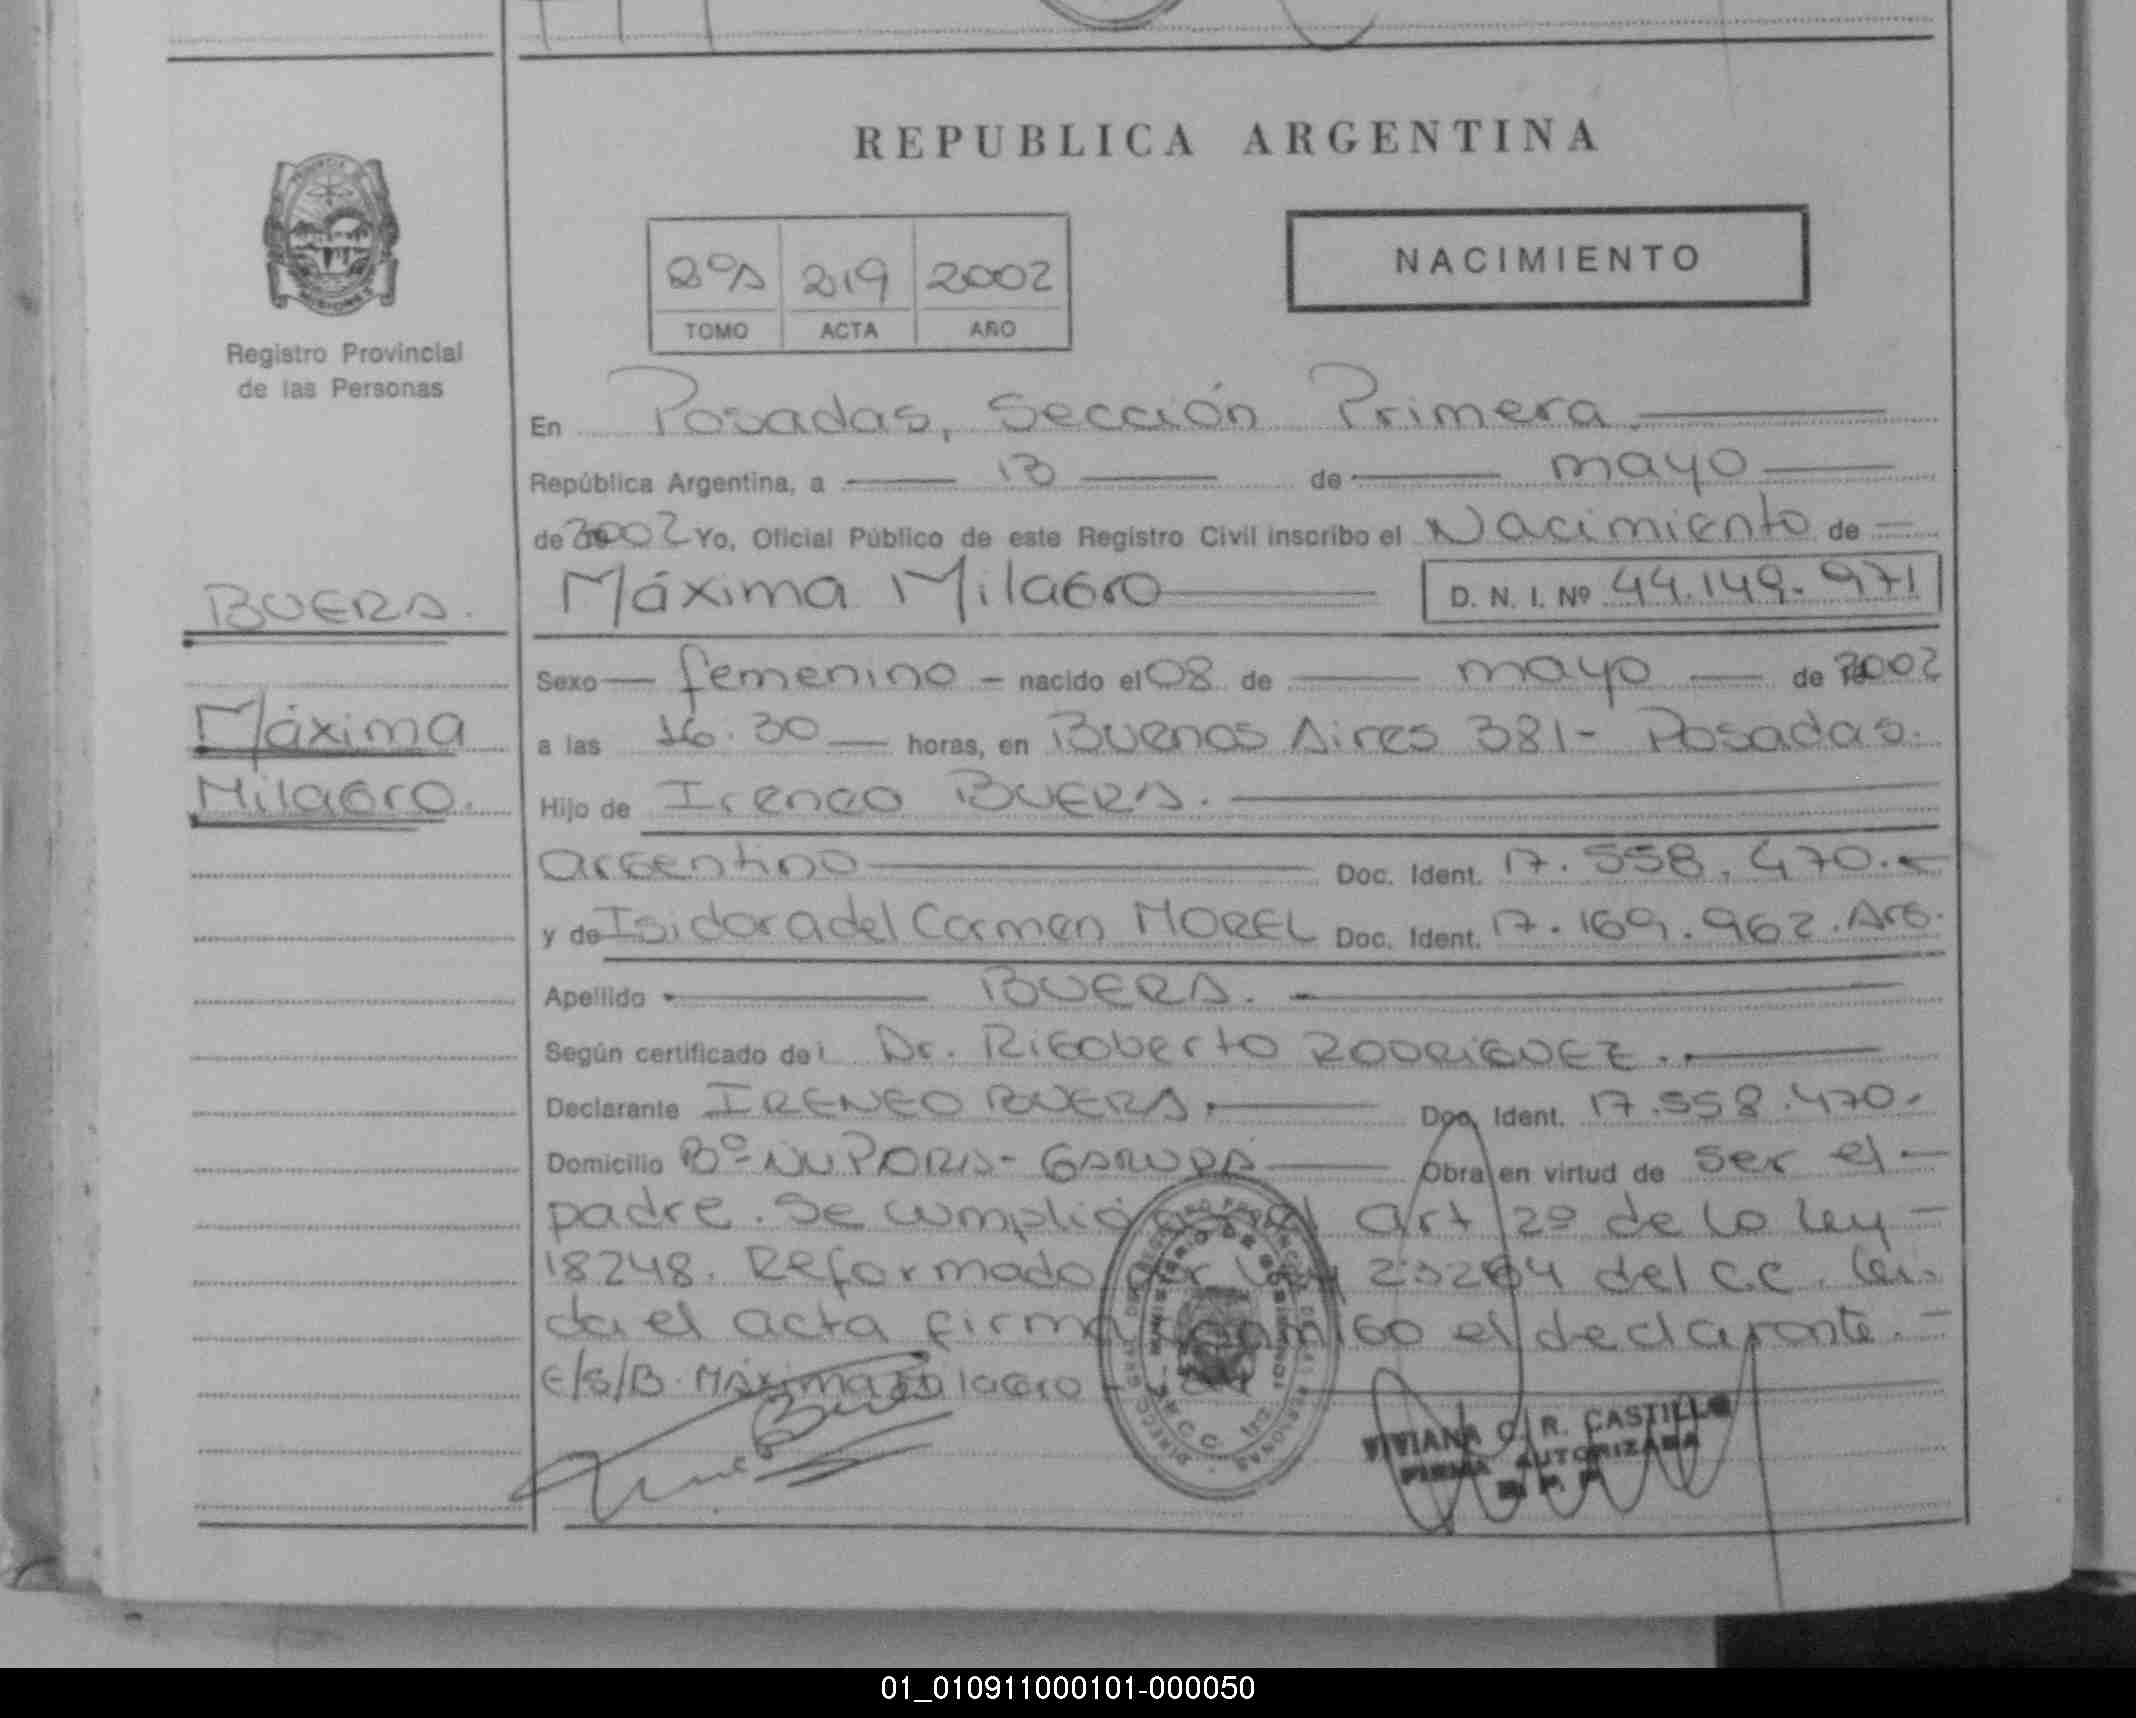 REPUBLICA ARGENTINA
NACIMIENTO
2ºA 219 2002
TOMO ACTA AÑO
Registro Provincial
de las Personas
En Posadas, Sección Primera
República Argentina, a 13 de mayo
de 2002 Yo, Oficial Público de este Registro Civil inscribo el Nacimiento de
Máxima Milagro D. N. I. Nº 44.149.971
BUERA.
Máxima
Milagro.
Sexo femenino - nacido el 08 de mayo de 2002
a las 16.30 horas, en Buenos Aires 381- Posadas.
Hijo de Ireneo BUERA.
argentino Doc. Ident. 17.558.470.-
y de Isidora del Carmen MOREL Doc. Ident. 17.169.962. Arg.
Apellido BUERA.
Según certificado de Dr. Rigoberto RODRIGUEZ.
Declarante IRENEO BUERA. Doc. Ident. 17.558.470.
Domicilio Bº ÑU PORA - GARUPA Obra en virtud de ser el -
padre. Se cumplió con el art 2º de la ley -
18248. Reformado por Ley 23264 del C.C. Leí-
da el acta firma conmigo el declarante. -
E/S/B. Máxima Milagro
VIVIANA C. R. CASTILLO
FIRMA AUTORIZADA
01_010911000101-000050